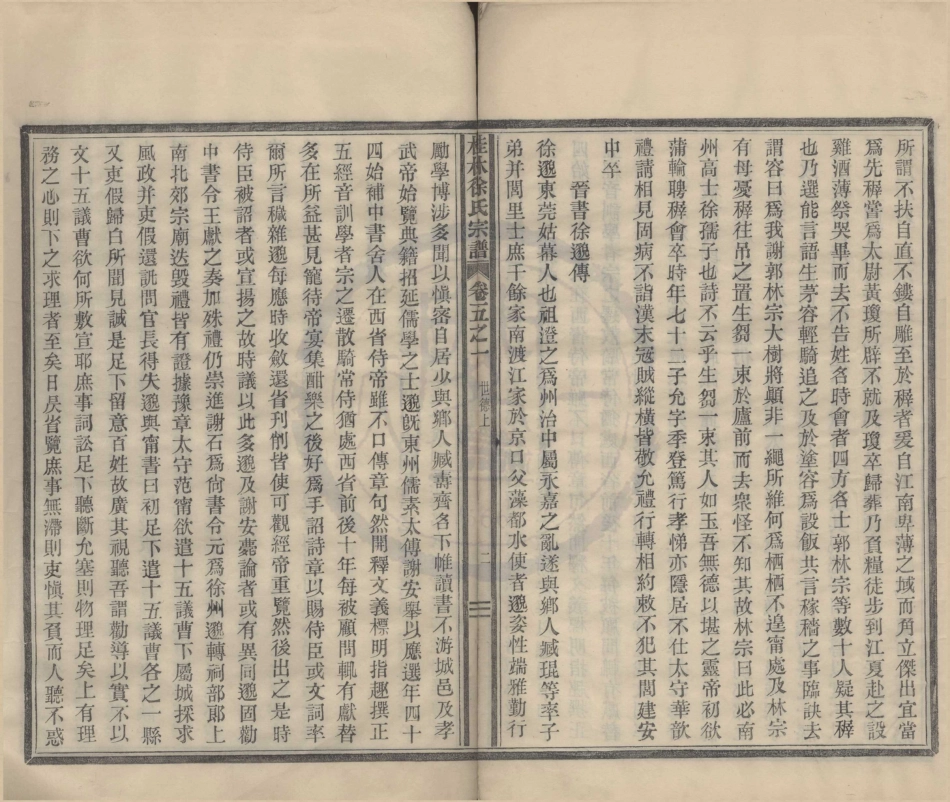 所謂不扶自直不鏤自雕至於穉者爰自江南卑薄之域而角立傑出宜當
為先穉嘗爲太尉黃瓊所辟不就及瓊卒歸葬乃負糧徒步到江夏赴之設
雞酒薄祭哭畢而去不告姓名時會者四方名士郭林宗等數十人疑其穉
也乃選能言語生茅容輕騎追之及於塗容爲設飯共言稼穡之事臨訣去
謂容曰爲我謝郭林宗大樹將顛非一繩所維何爲栖栖不遑甯處及林宗
有母憂穉往吊之置生芻一束於廬前而去衆怪不知其故林宗曰此必南
州高士徐孺子也詩不云乎生芻一束其人如玉吾無德以堪之靈帝初欲
蒲輪聘穉會卒時年七十二子允字季登篤行孝悌亦隱居不仕太守華歆
禮請相見固病不詣漢末寇賊縱橫皆敬允禮行轉相約敕不犯其閭建安
中卒
晉書徐邈傳
徐邈東莞姑幕人也祖澄之爲州治中屬永嘉之亂遂與鄉人臧琨等率子
弟并閭里士庶千餘家南渡江家於京口父藻都水使者邈姿性端雅勤行
桂林徐氏宗譜 卷五之一 世德上 二
勵學博涉多聞以愼密自居少與鄉人臧壽齊名下帷讀書不游城邑及孝
武帝始覽典籍招延儒學之士邈旣東州儒素太傅謝安舉以應選年四十
四始補中書舍人在西省侍帝雖不口傳章句然開釋文義標明指趣撰正
五經音訓學者宗之遷散騎常侍猶處西省前後十年每被顧問輒有獻替
多在所益甚見寵待帝宴集酣樂之後好爲手詔詩章以賜侍臣或文詞率
爾所言穢雜邈每應時收斂還省刊削皆使可觀經帝重覽然後出之是時
侍臣被詔者或宣揚之故時議以此多邈及謝安薨論者或有異同邈固勸
中書令王獻之奏加殊禮仍崇進謝石爲尙書令元爲徐州邈轉祠部郎上
南北郊宗廟迭毀禮皆有證據豫章太守范甯欲遣十五議曹下屬城採求
風政并吏假還訊問官長得失邈與甯書曰初足下遣十五議曹各之一縣
又吏假歸白所聞見誠是足下留意百姓故廣其視聽吾謂勸導以實不以
文十五議曹欲何所敷宣耶庶事詞訟足下聽斷允塞則物理足矣上有理
務之心則下之求理者至矣日昃省覽庶事無滯則吏愼其負而人聽不惑